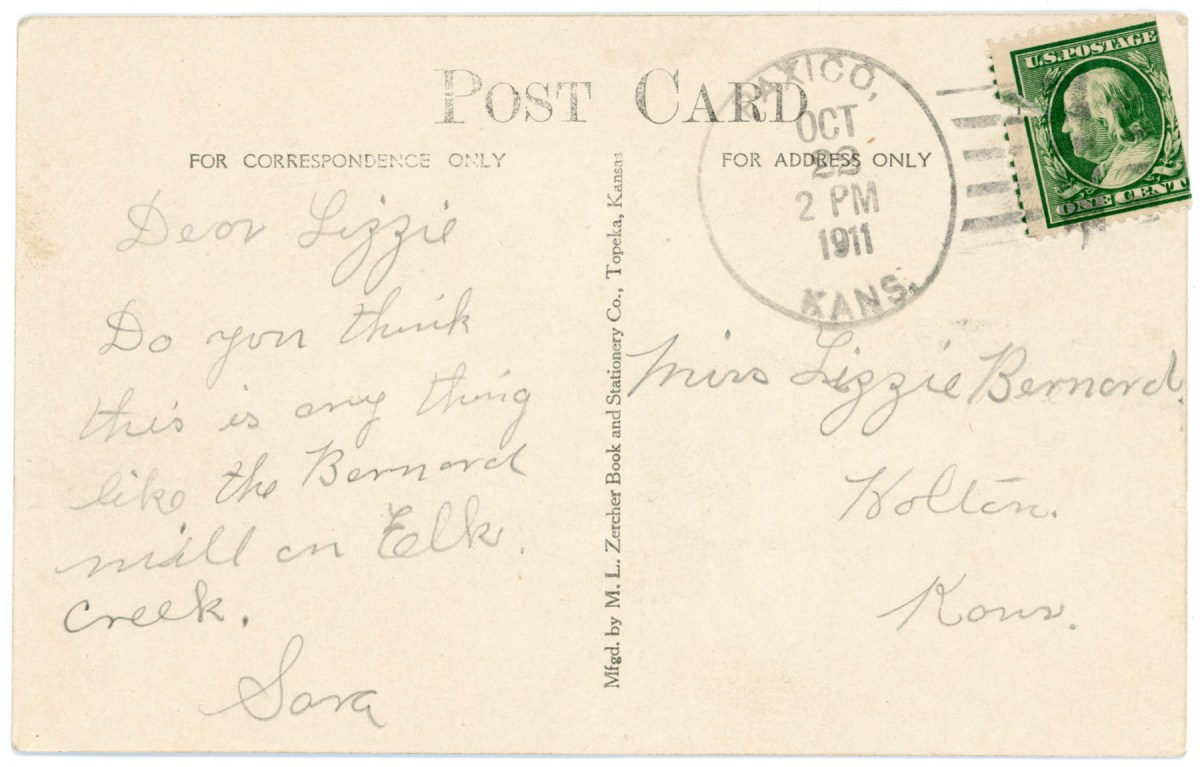 POST CARD
FOR CORRESPONDENCE ONLY
Dear Lizzie
Do you think
this is any thing
like the Bernard
mill on Elk
Creek.
Sara
Mfgd. by M. L. Zercher Book and Stationery Co., Topeka, Kansas
FOR ADDRESS ONLY
PAXICO,
OCT
22
2 PM
1911
KANS.
U.S. POSTAGE
ONE CENT
Miss Lizzie Bernard.
Holton.
Kans.